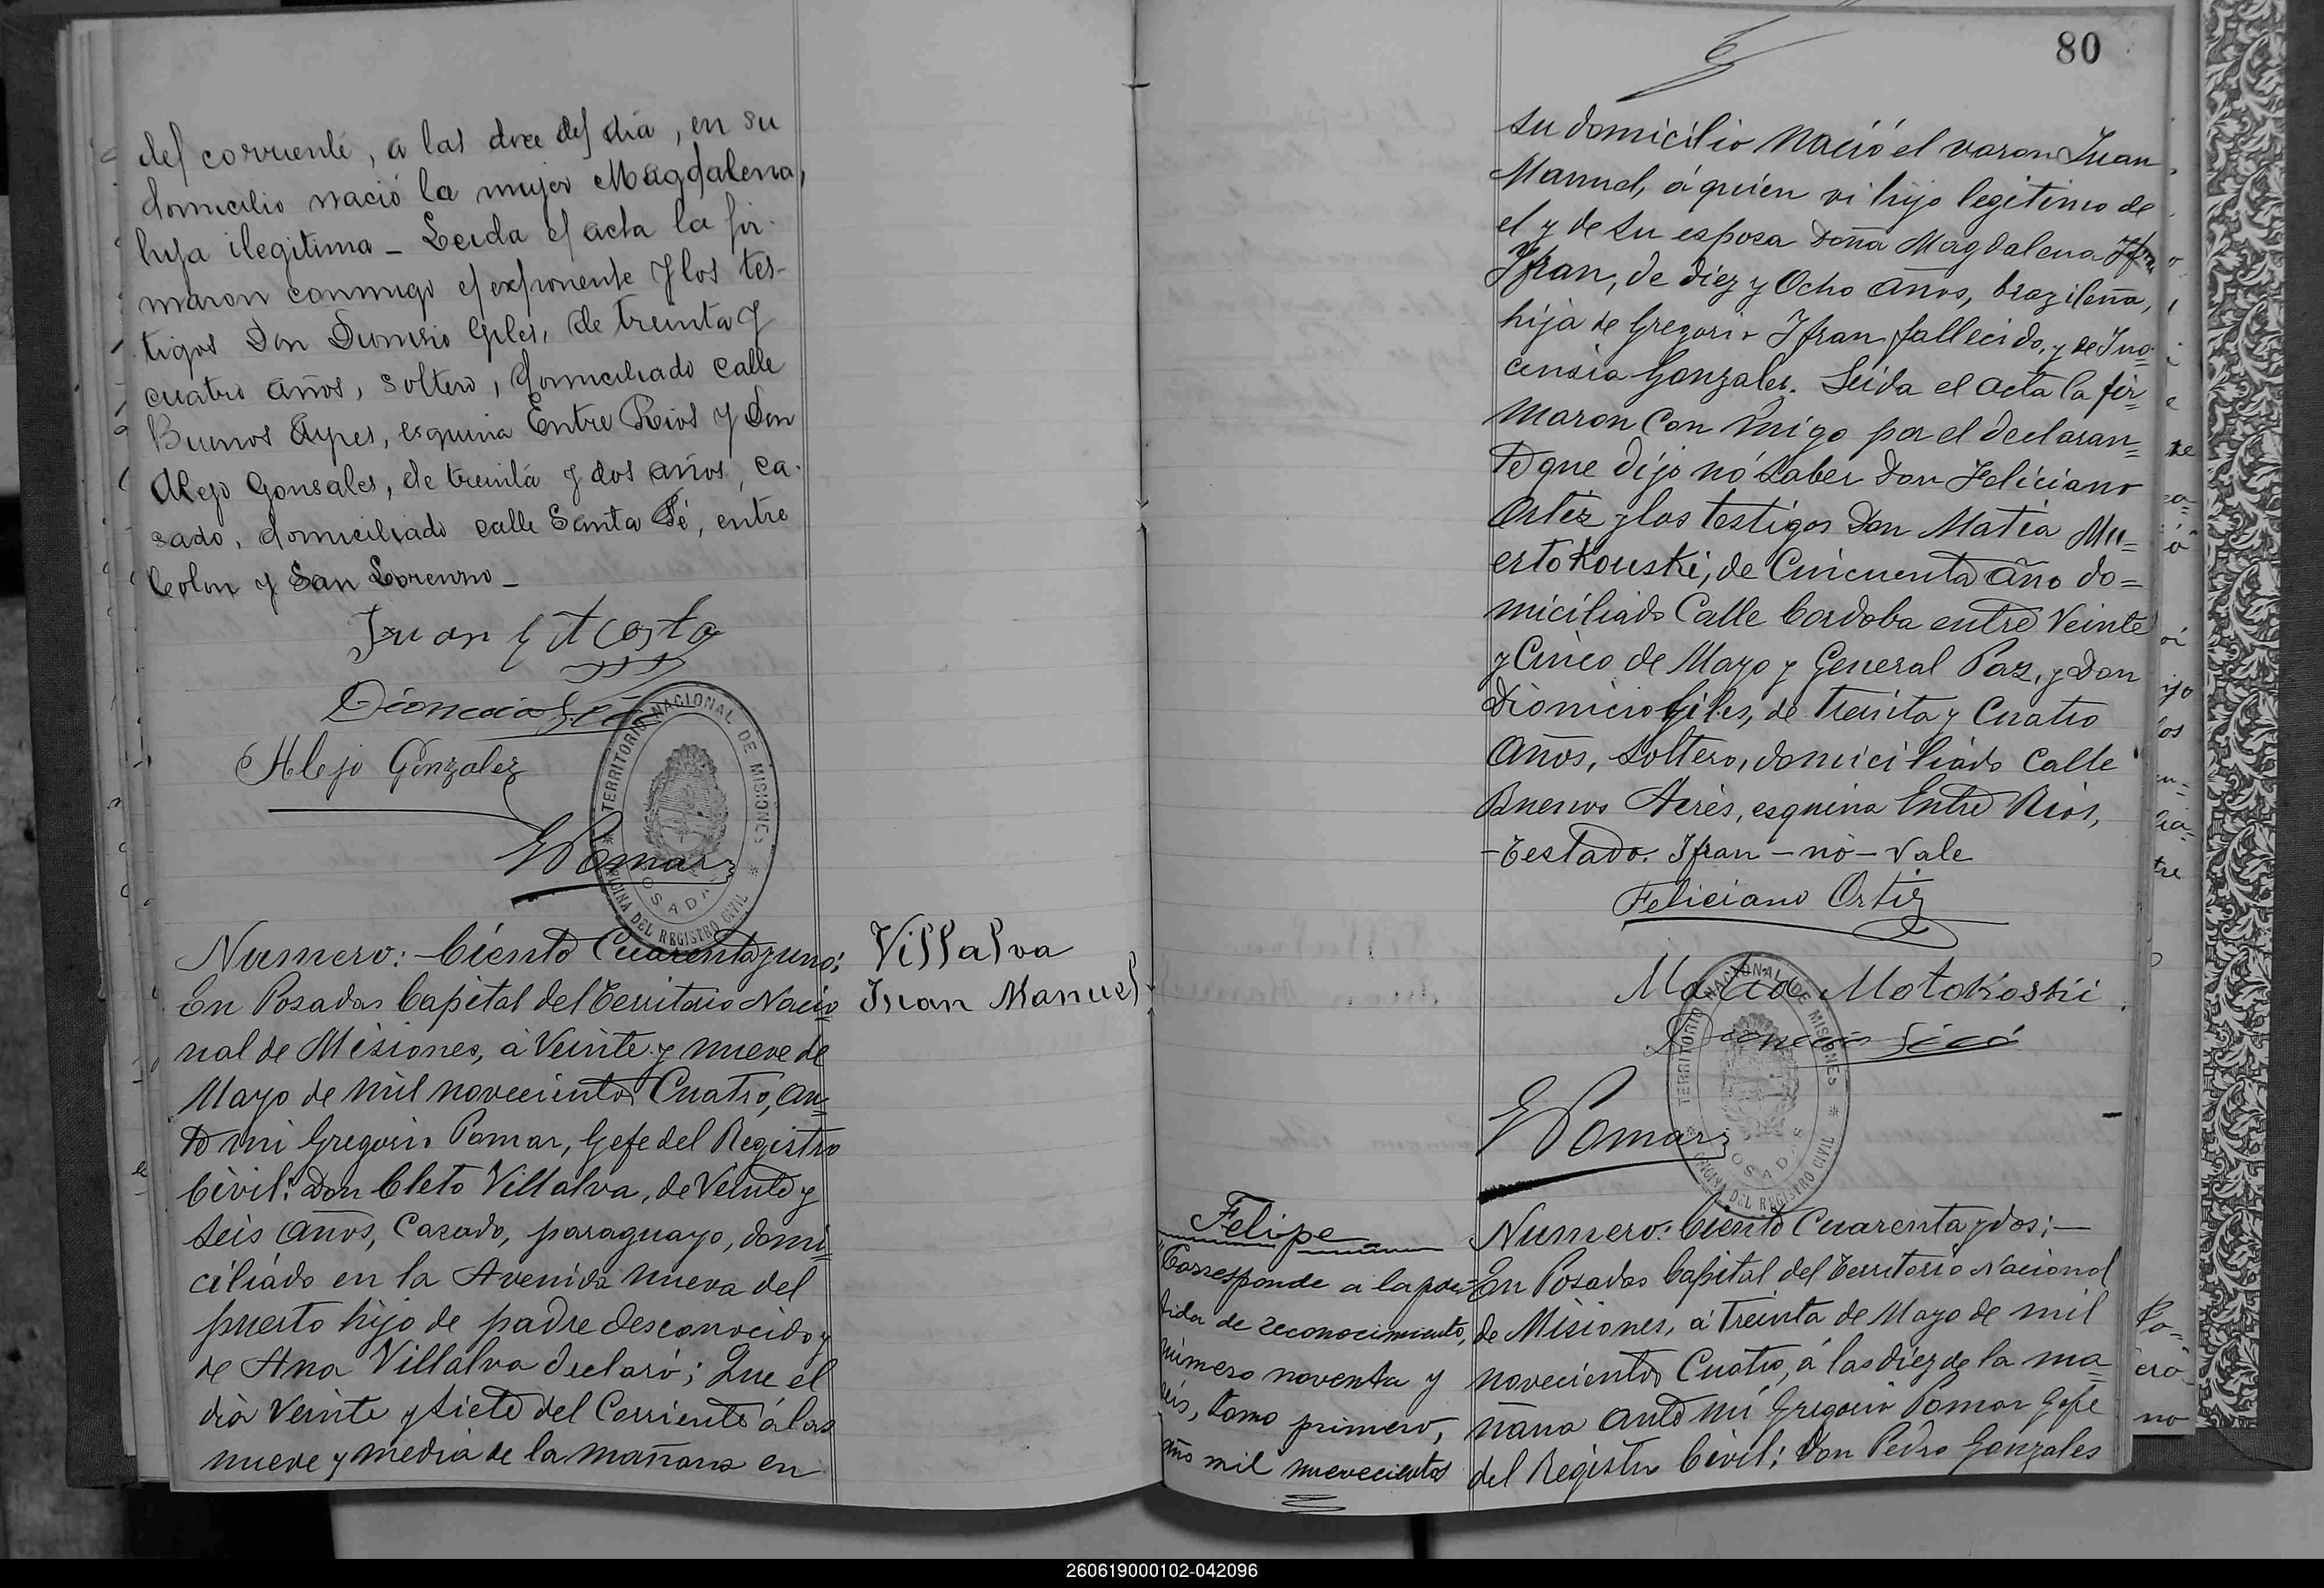 del corriente, a las doce del dia, en su
domicilio nació la mujer Magdalena,
hija ilegitima - Leida el acta la fir-
maron conmigo el exponente y los tes-
tigos Don Dionisio Giles, de treinta y
cuatro años, soltero, domiciliado calle
Buenos Ayres, esquina Entre Rios y Don
Alejo Gonsales, de treinta y dos años, ca-
sado, domiciliado calle Santa Fé, entre
Colon y San Lorenzo -
Juan Acosta
Alejo Gonzalez
G Pomar
TERRITORIO NACIONAL DE MISIONES
OFICINA DEL REGISTRO CIVIL
POSADAS
Numero: Ciento Cuarenta y uno:
En Posadas Capital del Territorio Nacio
nal de Misiones, á Veinte y nueve de
Mayo de mil novecientos Cuatro, an-
te mi Gregorio Pomar, Gefe del Registro
Civil: Don Cleto Villalva, de Veinte y
seis años, Casado, paraguayo, domi-
ciliado en la Avenida nueva del
puerto hijo de padre desconocido y
de Ana Villalva declaró; Que el
dia Veinte y siete del Corriente á las
nueve y media de la mañana en
Villalva
Juan Manuel
80
su domicilio Nació el varon Juan
Manuel, á quien vi hijo legitimo de
el y de su esposa Doña Magdalena Ifran
Ifran, de diez y Ocho años, brazileña,
hija de Gregorio Ifran fallecido, y de Ino-
cencia Gonzales. Leida el acta la fir-
maron Con migo por el declaran-
te que dijo nó saber Don Feliciano
Ortiz y los testigos Don Matia Mu-
ertokouski, de Cincuenta año do-
miciliado Calle Cordoba entre Veinte
y Cinco de Mayo y General Paz, y Don
Dionicio Giles, de treinta y Cuatro
años, soltero, domiciliado Calle
Buenos Aeres, esquina Entre Rios,
-Testado. Ifran - nó - vale
Feliciano Ortiz
Matia Motokoskii
G Pomar
TERRITORIO NACIONAL DE MISIONES
OFICINA DEL REGISTRO CIVIL
POSADAS
Felipe
"Corresponde a la par-
tida de reconocimiento,
número noventa y
seis, tomo primero,
año mil nuevecientos
Numero: Ciento Cuarenta y dos;-
En Posadas Capital del Territorio Nacional
de Misiones, á treinta de Mayo de mil
novecientos Cuatro, á las diez de la ma-
ñana ante mi Gregorio Pomar Gefe
del Registro Civil; Don Pedro Gonzales
260619000102-042096